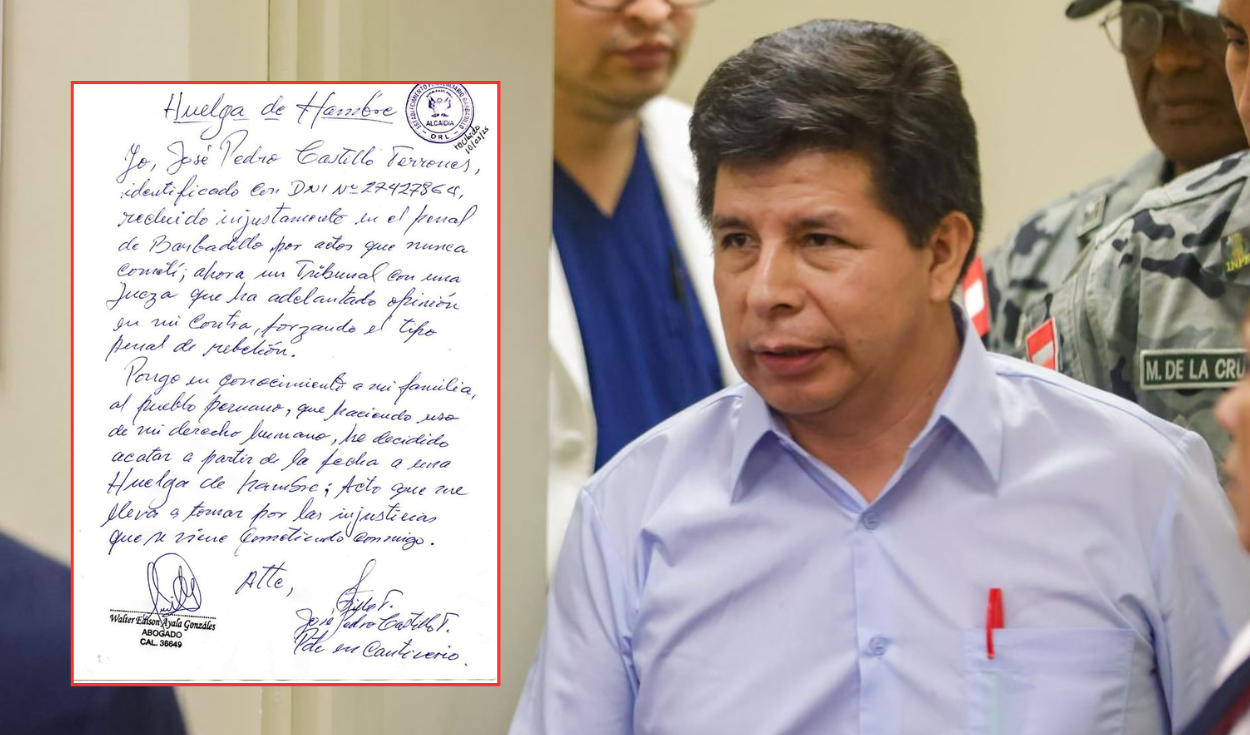 Huelga de Hambre
ALCAIDIA
ORL
recibido
10/03/25
Yo, José Pedro Castillo Terrones,
identificado con DNI Nº 27427864,
recluido injustamente en el penal
de Barbadillo por actos que nunca
cometí; ahora un Tribunal con una
Jueza que ha adelantado opinión
en mi contra, forzando el tipo
penal de rebelión.
Pongo en conocimiento a mi familia,
al pueblo peruano, que haciendo uso
de mi derecho humano, he decidido
acatar a partir de la fecha a una
Huelga de hambre; Acto que me
lleva a tomar por las injusticias
que se viene cometiendo conmigo.
Atte,
Walter Edison Ayala Gonzáles
ABOGADO
CAL. 36649
José Pedro Castillo T.
Pdte en Cautiverio.
M. DE LA CRU
INPE